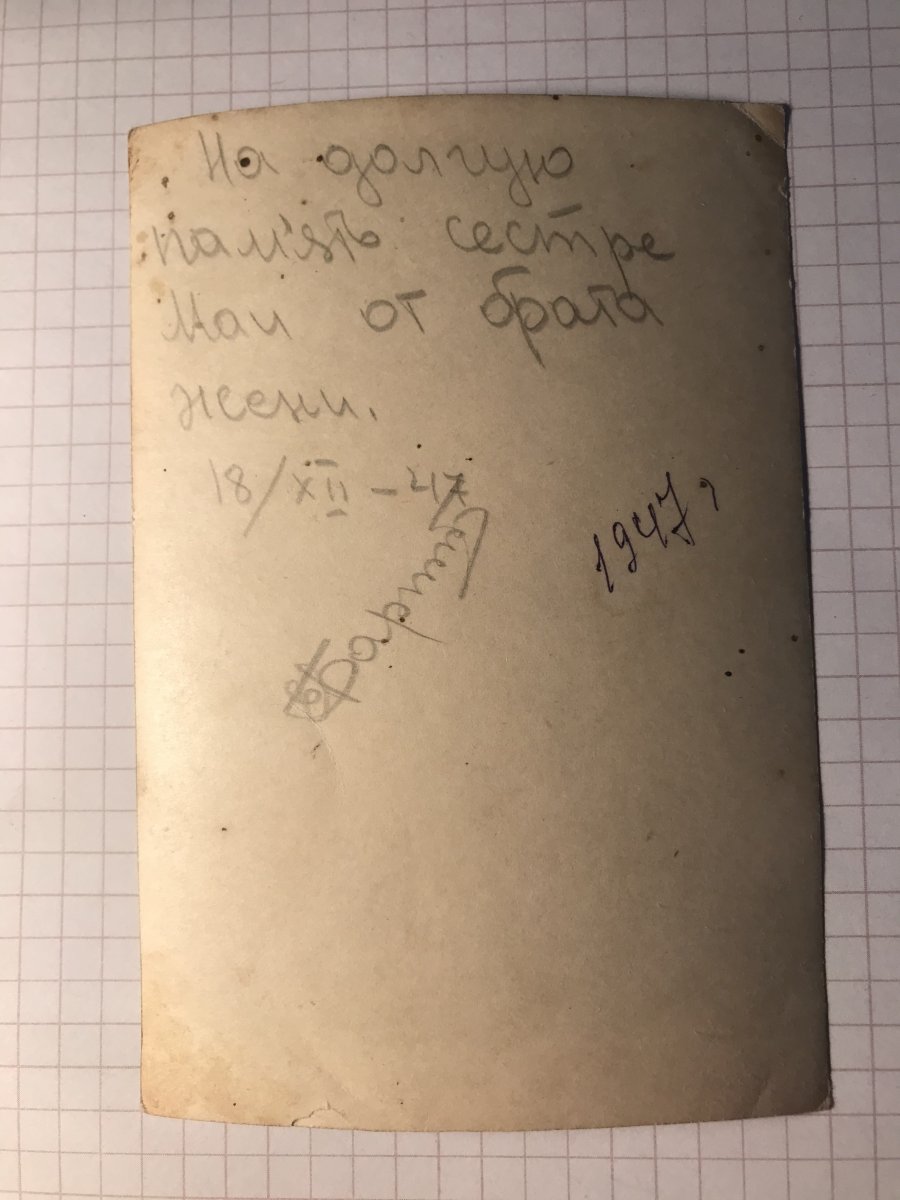 На долгую
пам'ять сестре
Маи от брата
жени.
18/XII – 47
1947 г